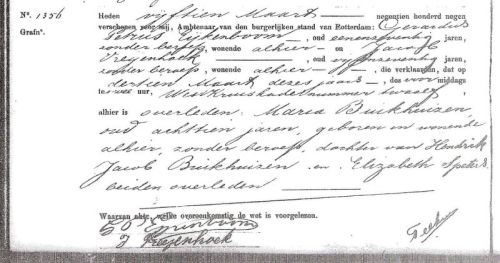 N°. 1356 Heden vijftien Maart negentien honderd negen
Grafn°. verschenen voor mij, Ambtenaar van den burgerlijken stand van Rotterdam: Gerardus
Petrus Eijkenboom, oud eenenzeventig jaren,
zonder beroep, wonende alhier en Jacob
Vreijenhoek, oud vijfenzeventig jaren,
zonder beroep, wonende alhier, die verklaarden, dat op
dertien Maart dezes jaars des voormiddags
te twee uur, Westkruiskade nummer twaalf
alhier is overleden: Maria Birkhuizen,
oud achttien jaren, geboren en wonende
alhier, zonder beroep, dochter van Hendrik
Jacob Birkhuizen en Elizabeth Speters
beiden overleden
Waarvan akte, welke overeenkomstig de wet is voorgelezen.
J Vreijenhoek